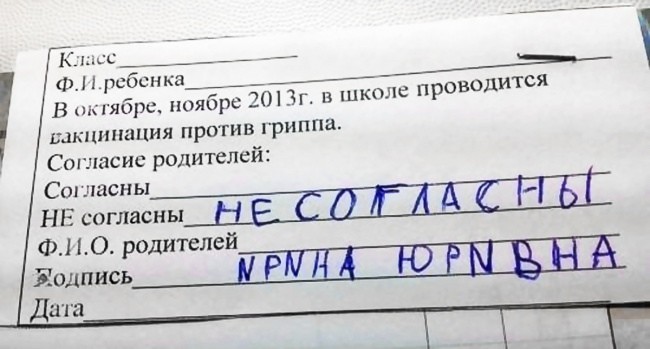 Класс
Ф.И.ребенка
В октябре, ноябре 2013г. в школе проводится
вакцинация против гриппа.
Согласие родителей:
Согласны
НЕ согласны НЕ СОГЛАСНЫ
Ф.И.О. родителей
Подпись NPNНА ЮРNВНА
Дата